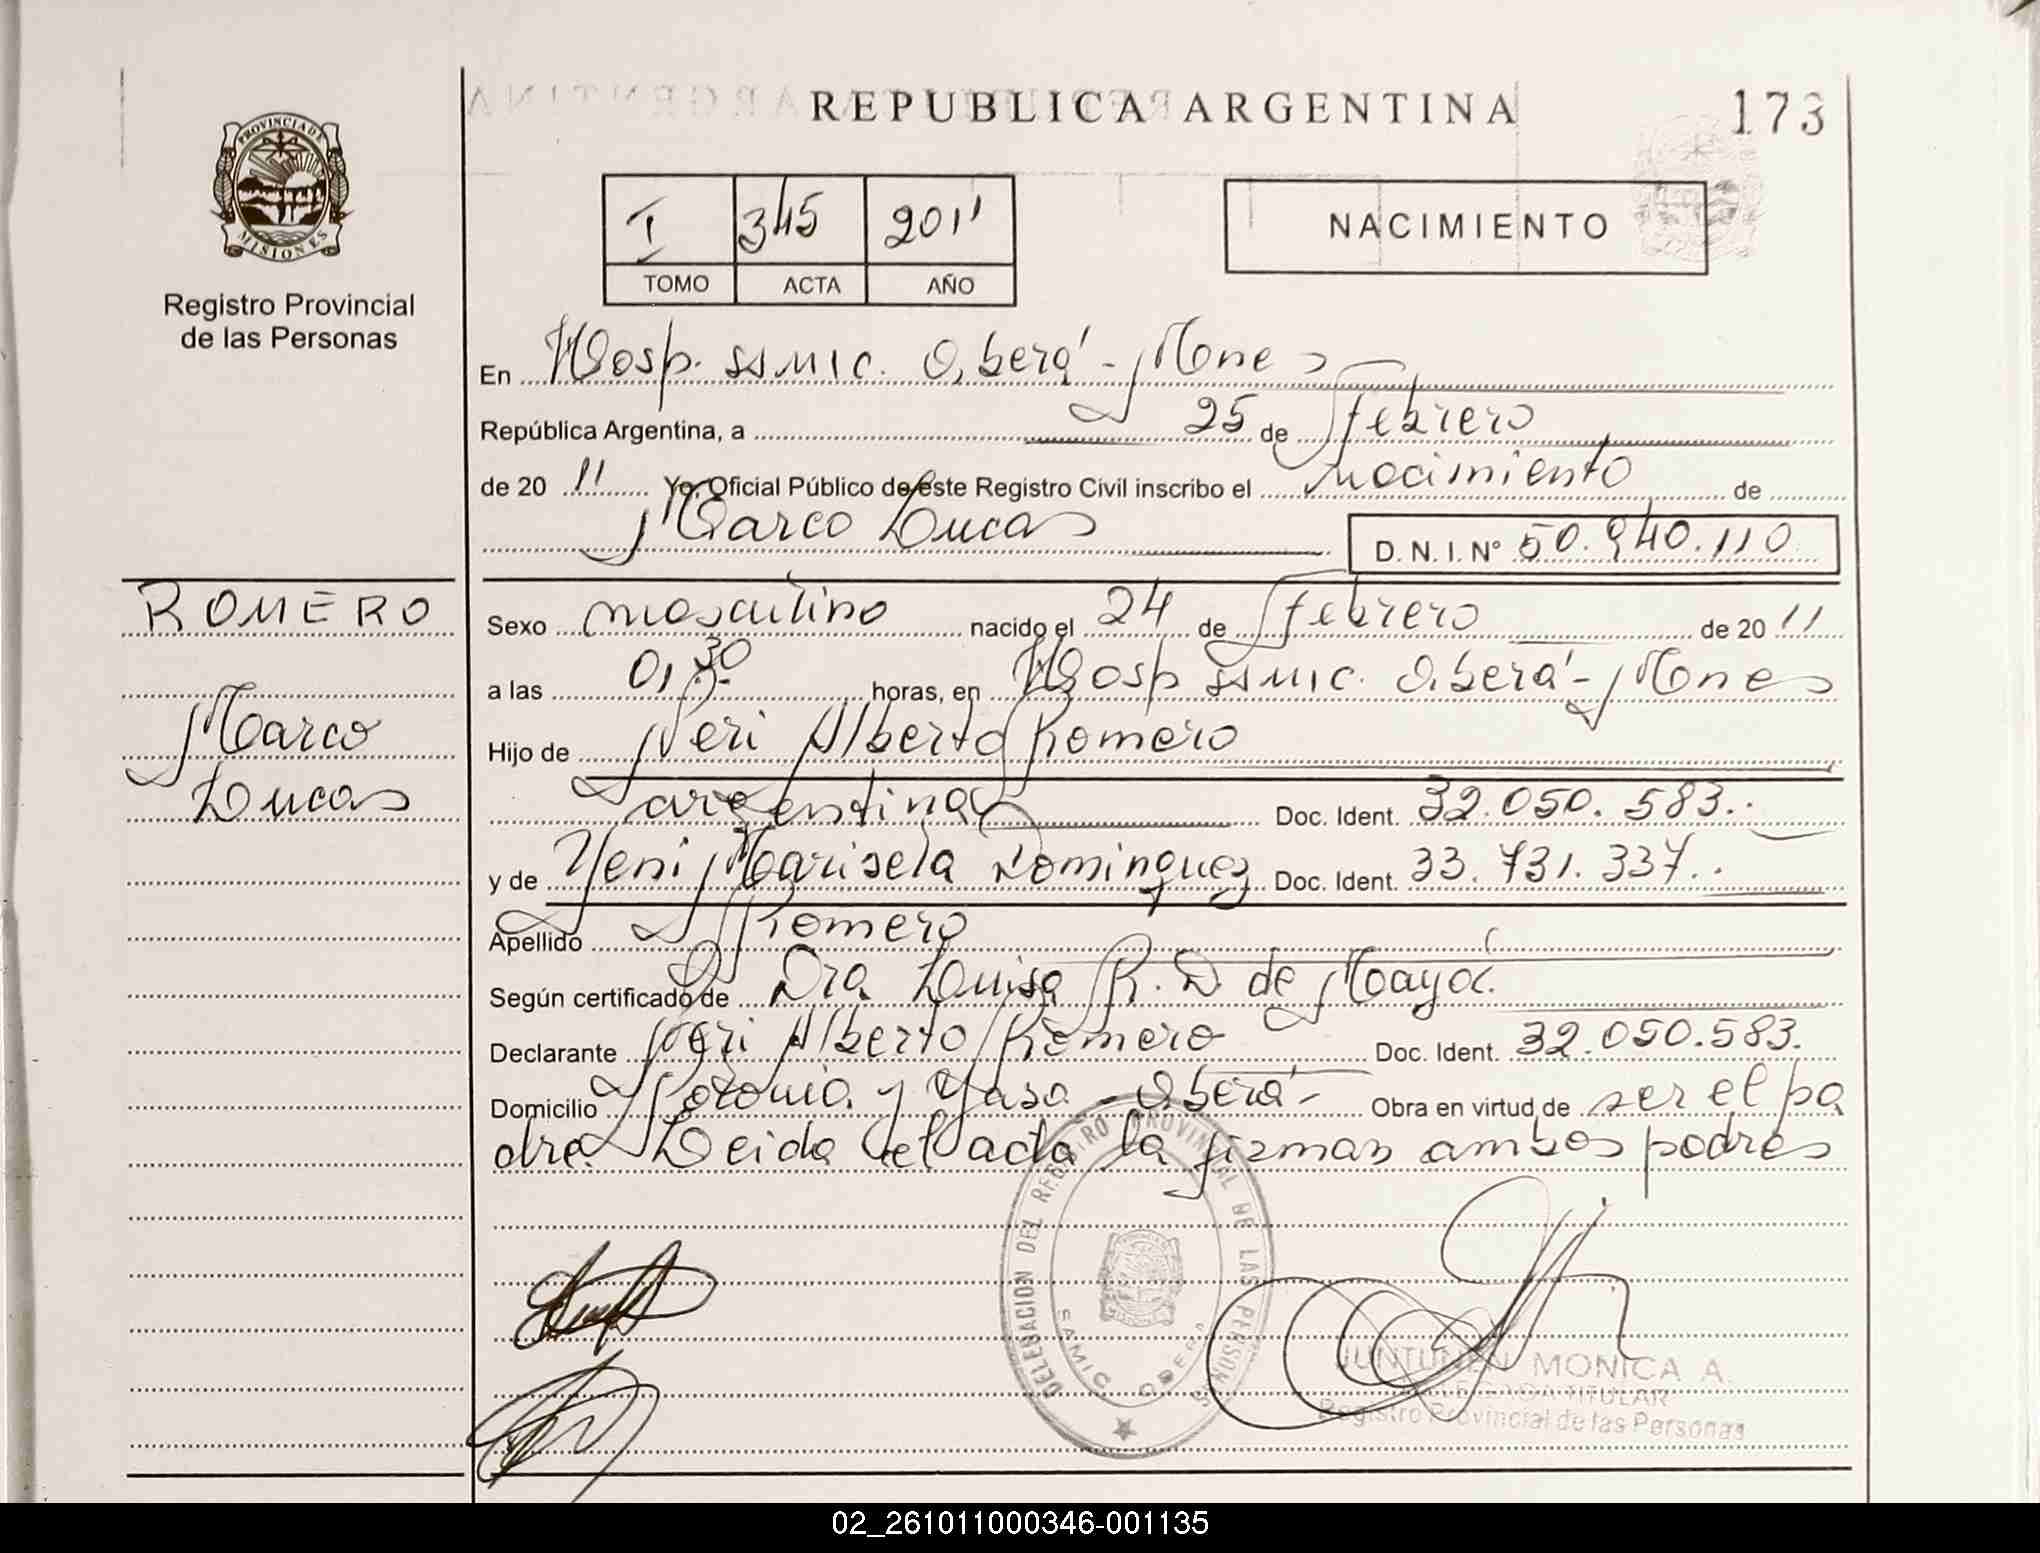 REPUBLICA ARGENTINA
173
PROVINCIA DE
MISIONES
Registro Provincial
de las Personas
I 345 2011
TOMO ACTA AÑO
NACIMIENTO
En Hosp. SAMIC. Oberá - Mnes
República Argentina, a 25 de febrero
de 20 11 Yo, Oficial Público de este Registro Civil inscribo el nacimiento de
Marco Lucas D. N. I. Nº 50.940.110
ROMERO
Marco
Lucas
Sexo masculino nacido el 24 de febrero de 20 11
a las 01,30 horas, en Hosp SAMIC. Oberá - Mnes
Hijo de Neri Alberto Romero
argentina Doc. Ident. 32.050.583.
y de Yeni Marisela Dominguez Doc. Ident. 33.731.337.
Apellido Romero
Según certificado de Dra Luisa R. D de
Declarante Neri Alberto Romero Doc. Ident. 32.050.583.
Domicilio y Yasa - Oberá - Obra en virtud de ser el pa
dre. Leida el acta la firman ambos padres
DELEGACION DEL REGISTRO PROVINCIAL DE LAS PERSONAS
SAMIC OBERA
JUNTUNEN MONICA A.
DELEGADA TITULAR
Registro Provincial de las Personas
02_261011000346-001135